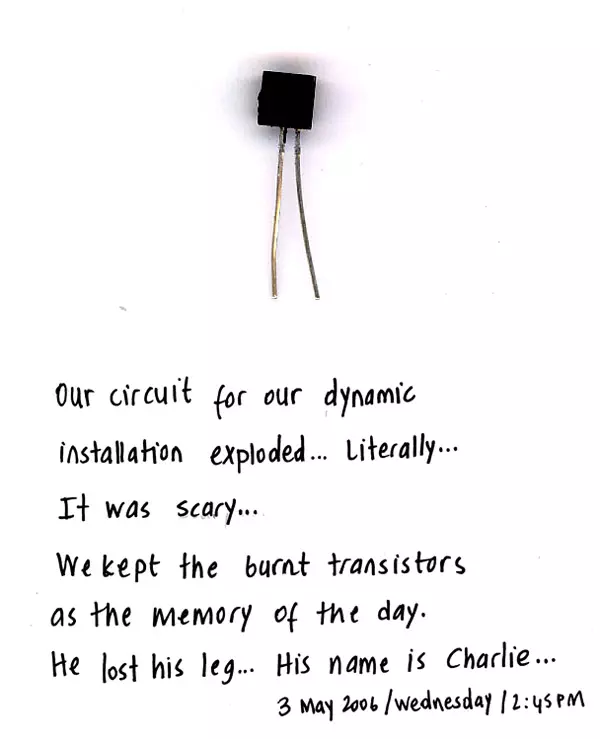 Our circuit for our dynamic
installation exploded... Literally...
It was scary...
We kept the burnt transistors
as the memory of the day.
He lost his leg... His name is Charlie...
3 May 2006/Wednesday/2:45PM